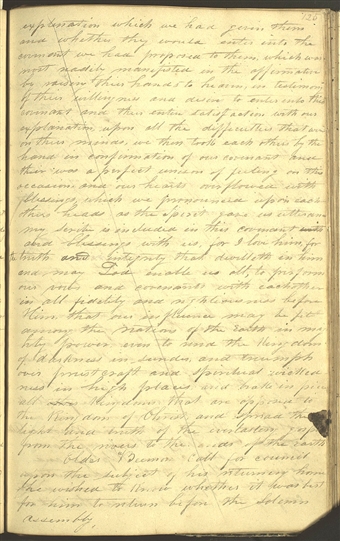 125
explanation which we had given them
and whether they would enter into the
covenant we had proposed to them, which was
most readily manifested in the affirmative
by raising their hands to heaven, in testimony
of their willingness and desire to enter into this
covenant and their entire satisfaction with our
explanation, upon all the difficulties that were
on their minds, we then took each other by the
hand in confirmation of our covenant and
their was a perfect unison of feeling on this
occasion, and our hearts overflowed with
blessings, which we pronounced upon each
others heads as the Spirit gave us utterance
my scribe is included in this covenant
and blessings with us, for I love him, for
the truth and integrity that dwelleth in him
and may God enable us all, to perform
our vows and covenants with each other
in all fidelity and righteousness before
Him that our influence may be felt
among the nations of the Earth in mi-
ghty power, even to rend the Kingdom
of darkness in sunder, and triumph
over priestcraft and spiritual wicked-
ness in high places, and brake in pieces
all Kingdoms that are opposed to
the Kingdom of Christ, and spread the
light and truth of the everlasting gospel
from the rivers to the ends of the earth
Elder Beeman call for council
upon the subject of his returning home
he wished to know whether it was best
for him to return before the Solemn
Assembly,